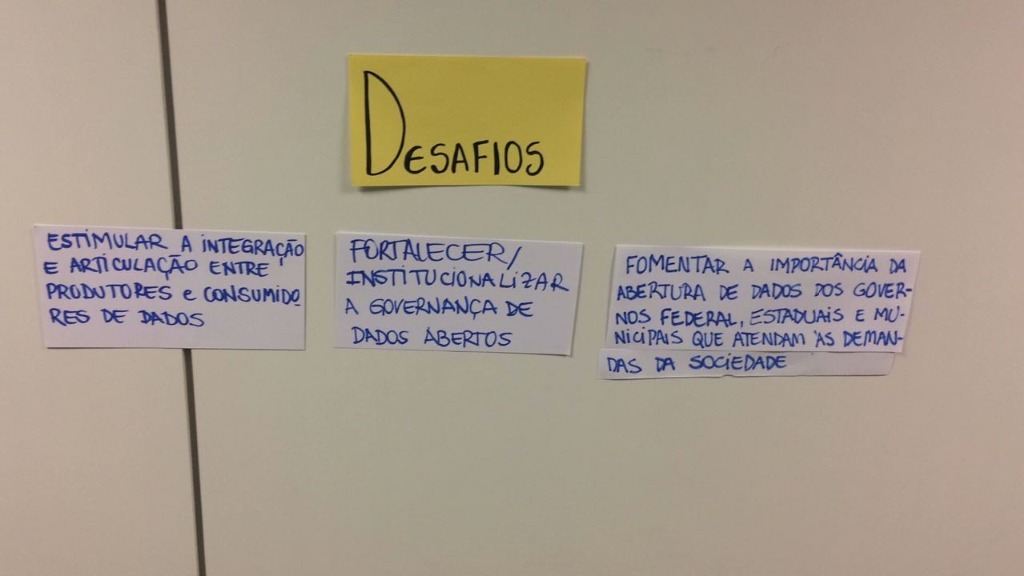 DESAFIOS
ESTIMULAR A INTEGRAÇÃO
E ARTICULAÇÃO ENTRE
PRODUTORES e CONSUMIDO
RES DE DADOS
FORTALECER/
INSTITUCIONALIZAR
A GOVERNANÇA DE
DADOS ABERTOS
FOMENTAR A IMPORTÂNCIA DA
ABERTURA DE DADOS DOS GOVER-
NOS FEDERAL, ESTADUAIS E MU-
NICIPAIS QUE ATENDAM ÀS DEMAN-
DAS DA SOCIEDADE